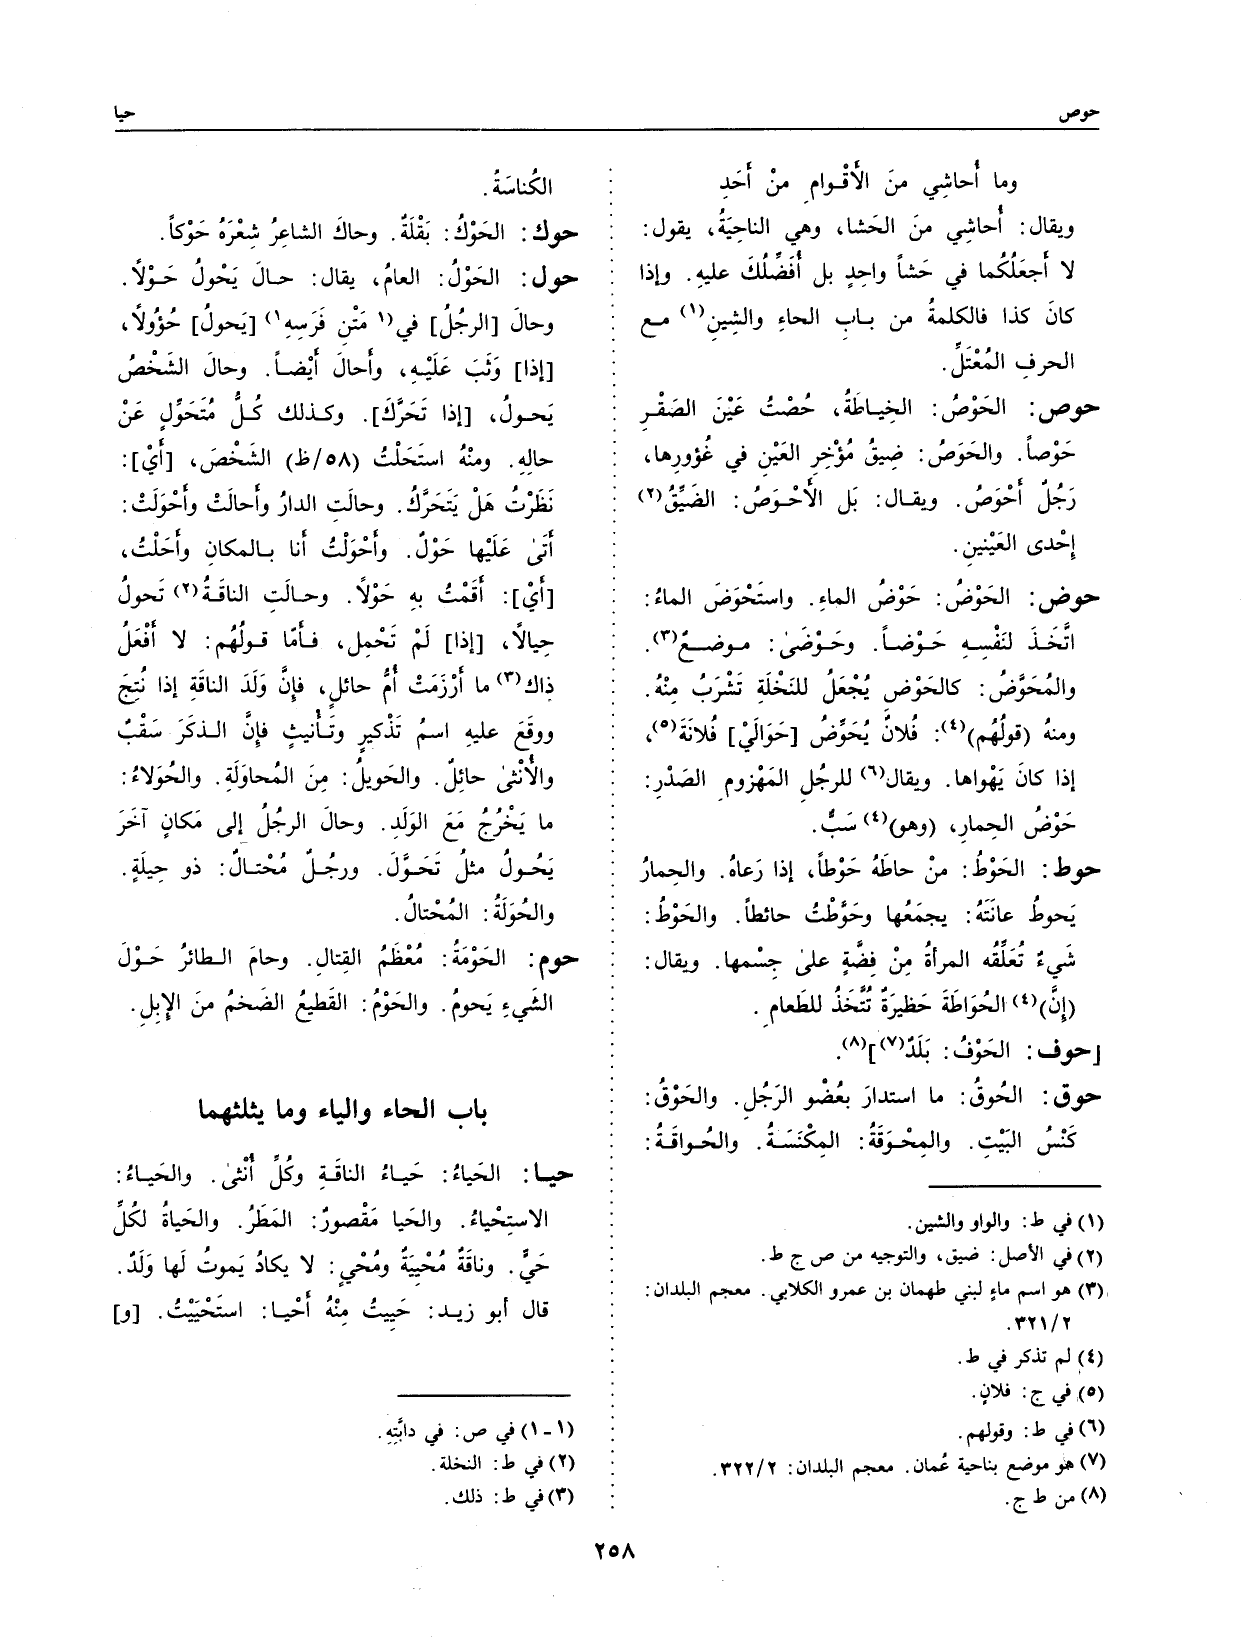 حوص
حيا
وما أُحاشِي منَ الأَقْـوامِ منْ أَحَدِ
ويقال: أُحاشِي منَ الحَشا، وهي الناحِيَةُ، يقول:
لا أَجعَلُكُما في حَشاً واحِدٍ بل أُفَضِّلُكَ عليهِ. وإذا
كانَ كذا فالكلمةُ من بـابِ الحاءِ والشِينِ(١) مـع
الحرفِ المُعْتَلِّ.
حوص: الحَوْصُ: الخِياطَةُ، حُصْتُ عَيْنَ الصَقْـرِ
حَوْصاً. والحَوَصُ: ضِيقُ مُؤْخِرِ العَيْنِ في غُوُورِها،
رَجُلٌ أَحْوَصُ. ويقـال: بَل الأَحْـوَصُ: الضَيِّقُ(٢)
إحْدى العَيْنينِ.
حوض: الحَوْضُ: حَوْضُ الماءِ. واستَحْوَضَ الماءُ:
اتَّخَـذَ لنَفْسِـهِ حَـوْضـاً. وحَـوْضَىٰ: مـوضـعٌ(٣).
والمُحَوَّضُ: كالحَوْضِ يُجْعَلُ للنَخْلَةِ تَشْرَبُ مِنْهُ.
ومنهُ (قولُهُم)(٤): فُلانٌ يُحَوِّضُ [حَوَالَيْ] فُلانَةَ(٥)،
إذا كانَ يَهْواها. ويقال(٦) للرجُلِ المَهْزومِ الصَدْرِ:
حَوْضُ الحِمارِ، (وهو)(٤) سَبٌّ.
حوط: الحَوْطُ: منْ حاطَهُ حَوْطاً، إذا رَعاهُ. والحِمارُ
يَحوطُ عانَتَهُ: يجمَعُها وحَوَّطْتُ حائطاً. والحَوْطُ:
شَيءٌ تُعَلِّقُه المرأةُ مِنْ فِضَّةٍ علىٰ جِسْمِها. ويقال:
(إنَّ)(٤) الحُوَاطَةَ حَظيرَةٌ تُتَّخَذُ للطَعامِ.
[حوف: الحَوْفُ: بَلَدٌ(٧)](٨).
حوق: الحُوقُ: ما استدارَ بعُضْوِ الرَجُلِ. والحَوْقُ:
كَنْسُ البَيْتِ. والمِحْـوَقَةُ: المِكْنَسَـةُ. والحُـواقَـةُ:
(١) في ط: والواو والشين.
(٢) في الأصل: ضيق، والتوجيه من ص ج ط.
(٣) هو اسم ماءٍ لبني طهمان بن عمرو الكلابي. معجم البلدان:
٣٢١/٢.
(٤) لم تذكر في ط.
(٥) في ج: فلانٍ.
(٦) في ط: وقولهم.
(٧) هو موضع بناحية عُمان. معجم البلدان: ٣٢٢/٢.
(٨) من ط ج.
الكُناسَةُ.
حوك: الحَوْكُ: بَقْلَةٌ. وحاكَ الشاعِرُ شِعْرَهُ حَوْكاً.
حول: الحَوْلُ: العامُ، يقال: حـالَ يَحْولُ حَـوْلاً.
وحالَ [الرجُلُ] في(١ مَتْنِ فَرَسِهِ١) [يَحولُ] حُؤُولاً،
[إذا] وَثَبَ عَلَيْـهِ، وأَحالَ أَيْضـاً. وحالَ الشَخْصُ
يَحـولُ، [إذا تَحَرَّكَ]. وكـذلك كُـلُّ مُتَحَوِّلٍ عَنْ
حالِهِ. ومنْهُ استَحَلْتُ (٥٨/ظ) الشَخْصَ، [أَيْ]:
نَظَرْتُ هَلْ يَتَحَرَّكُ. وحالَتِ الدارُ وأَحالَتْ وأَحْوَلَتْ:
أَتَىٰ عَلَيْها حَوْلٌ. وأَحْوَلْتُ أنا بـالمكانِ وأَحَلْتُ،
[أَيْ]: أَقَمْتُ بهِ حَوْلاً. وحـالَتِ الناقَـةُ(٢) تَحولُ
حِيالاً، [إذا] لَمْ تَحْمِل، فـأمّا قـولُهُم: لا أَفْعَلُ
ذاك(٣) ما أَرْزَمَتْ أُمُّ حائلٍ، فإنَّ وَلَدَ الناقَةِ إذا نُتِجَ
ووقَعَ عليهِ اسمُ تَذْكيرٍ وتَـأْنيثٍ فإنَّ الـذكَرَ سَقْبٌ
والأُنْثىٰ حائلٌ. والحَويلُ: مِنَ المُحاوَلَةِ. والحُوَلاءُ:
ما يَخْرُجُ مَعَ الوَلَدِ. وحالَ الرجُلُ إلى مَكانٍ آخَرَ
يَحُـولُ مثلُ تَحَـوَّلَ. ورجُلٌ مُحْتـالٌ: ذو حِيلَةٍ.
والحُوَلَةُ: المُحْتالُ.
حوم: الحَوْمَةُ: مُعْظَمُ القِتالِ. وحامَ الـطائرُ حَـوْلَ
الشَيءِ يَحومُ. والحَوْمُ: القَطيعُ الضَخمُ منَ الإِبلِ.
باب الحاء والياء وما يثلثهما
حيـا: الحَياءُ: حَيـاءُ الناقَـةِ وكُلِّ أُنْثىٰ. والحَيـاءُ:
الاستِحْياءُ. والحَيا مَقْصورٌ: المَطَرُ. والحَياةُ لكُلِّ
حَيٍّ. وناقَةٌ مُحْيِيَةٌ ومُحْيٍ: لا يكادُ يَموتُ لَها وَلَدٌ.
قال أبو زيـد: حَيِيتُ مِنْهُ أَحْيا: استَحْيَيْتُ. [و]
(١-١) في ص: في دابَّتِهِ.
(٢) في ط: النخلة.
(٣) في ط: ذلك.
٢٥٨